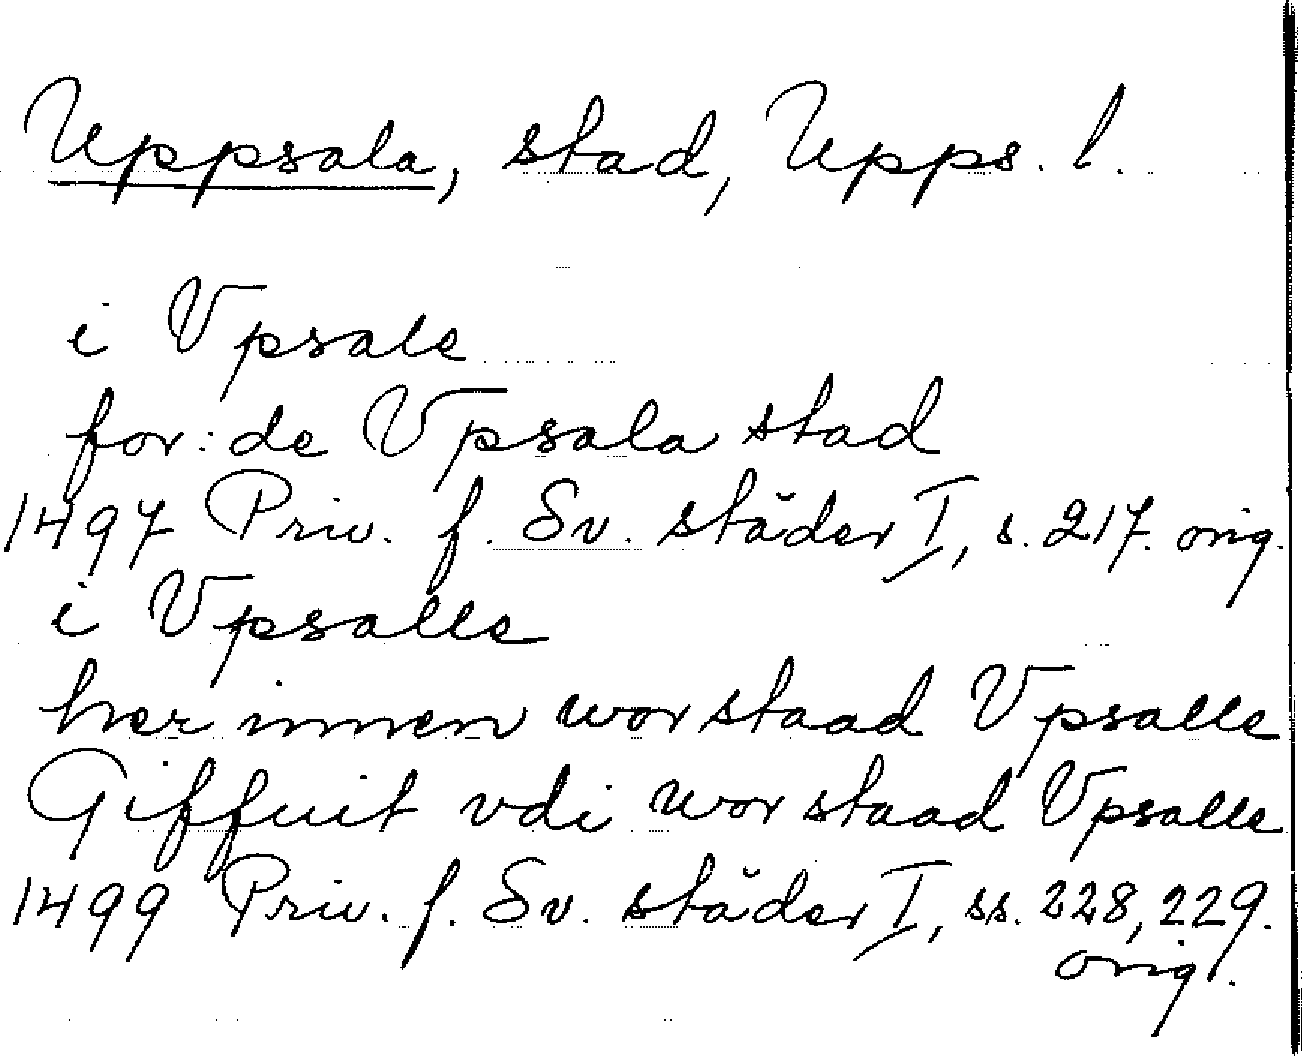 Uppsala, stad, Upps. l.
i Vpsale
for: de Vpsala stad
1497 Priv. f. Sv. städer I, s. 217. orig.
i Vpsalle
her innen wor staad Vpsalle
Giffuit vdi wor staad Vpsalle
1499 Priv. f. Sv. städer I, ss. 228, 229.
orig.